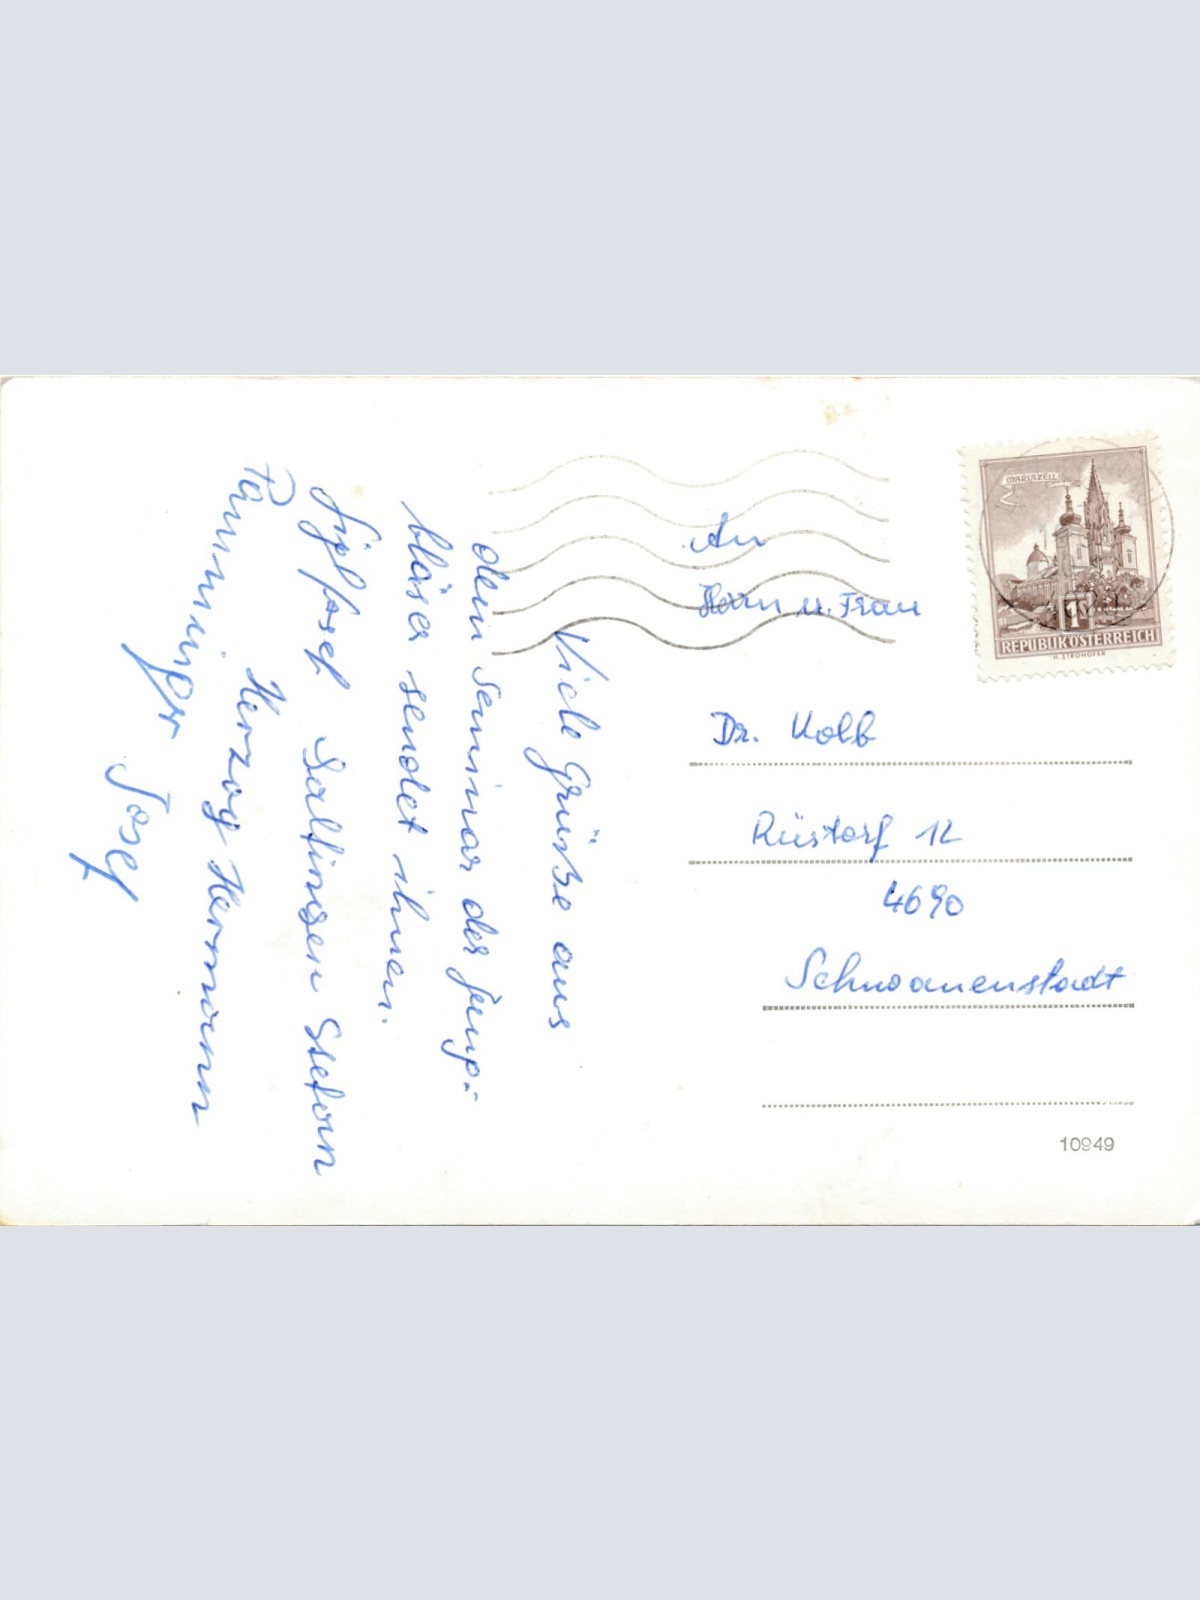 Viele Grüße aus
dem Seminar der Jung-
bläser sendet ihnen.
Josef Stefan
Herzog Hermann
Josef
An
Herrn u. Frau
Dr. Kolb
Rüstorf 12
4690
Schwanenstadt
MARIAZELL
1
REPUBLIK ÖSTERREICH
H. STROHOFER
10949